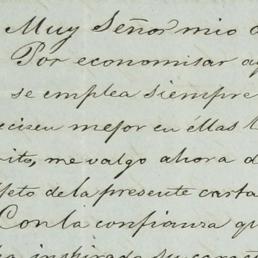 Muy Señor mio
Por economisar
se emplea siempre
mejor en ellas
me valgo ahora d
de la presente carta
Con la confianza qu
inspirado su